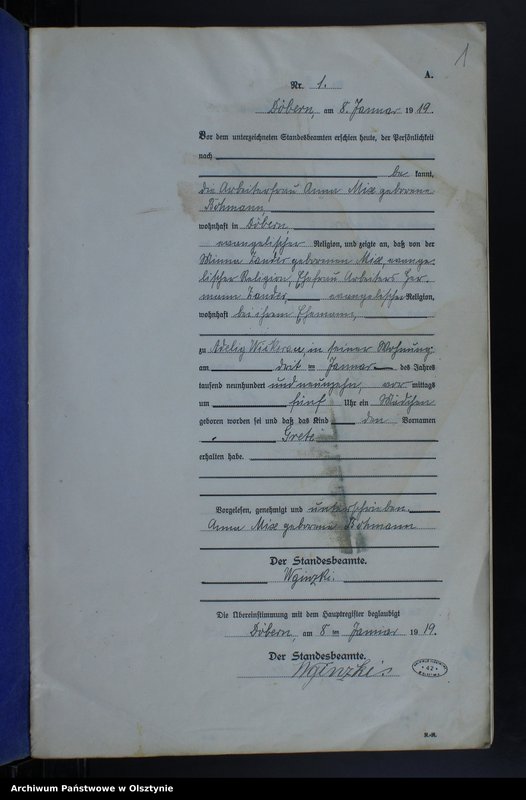 1
A.
Nr. 1.
Döbern, am 8. Januar 1919.
Vor dem unterzeichneten Standesbeamten erschien heute, der Persönlichkeit
nach
be kannt,
die Arbeiterfrau Anna Mix geborene
Böhmann,
wohnhaft in Döbern,
evangelischer Religion, und zeigte an, daß von der
Minna Zander geborenen Mix, evange-
lischer Religion, Ehefrau Arbeiters Her-
mann Zander, evangelischer Religion,
wohnhaft bei ihrem Ehemanne,
zu Adelig in seiner Wohnung
am drei ten Januar des Jahres
tausend neunhundert und neunzehn, vor mittags
um fünf Uhr ein Mädchen
geboren worden sei und daß das Kind den Vornamen
Grete
erhalten habe.
Vorgelesen, genehmigt und unterschrieben.
Anna Mix geborene Böhmann
Der Standesbeamte.
Die Übereinstimmung mit dem Hauptregister beglaubigt
Döbern, am 8 ten Januar 1919.
Der Standesbeamte.
42
R.-R.
Archiwum Państwowe w Olsztynie